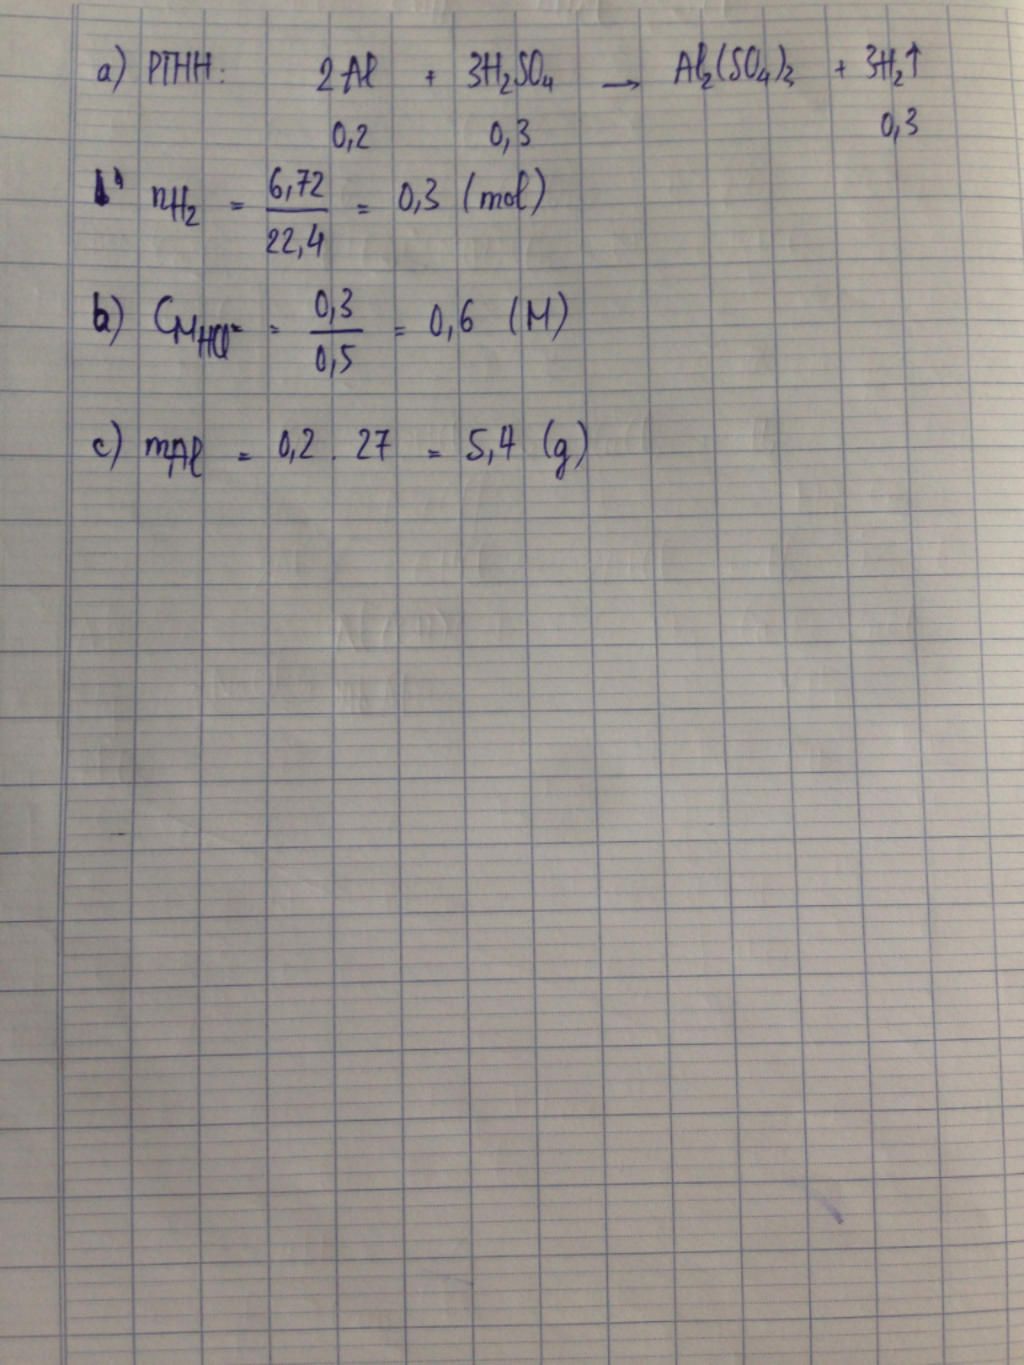 a) PTHH: 2Al + 3H₂SO₄ → Al₂(SO₄)₃ + 3H₂↑
0,2 0,3 0,3
nH₂ = 6,72 / 22,4 = 0,3 (mol)
b) CM HCl = 0,3 / 0,5 = 0,6 (M)
c) mAl = 0,2 . 27 = 5,4 (g)